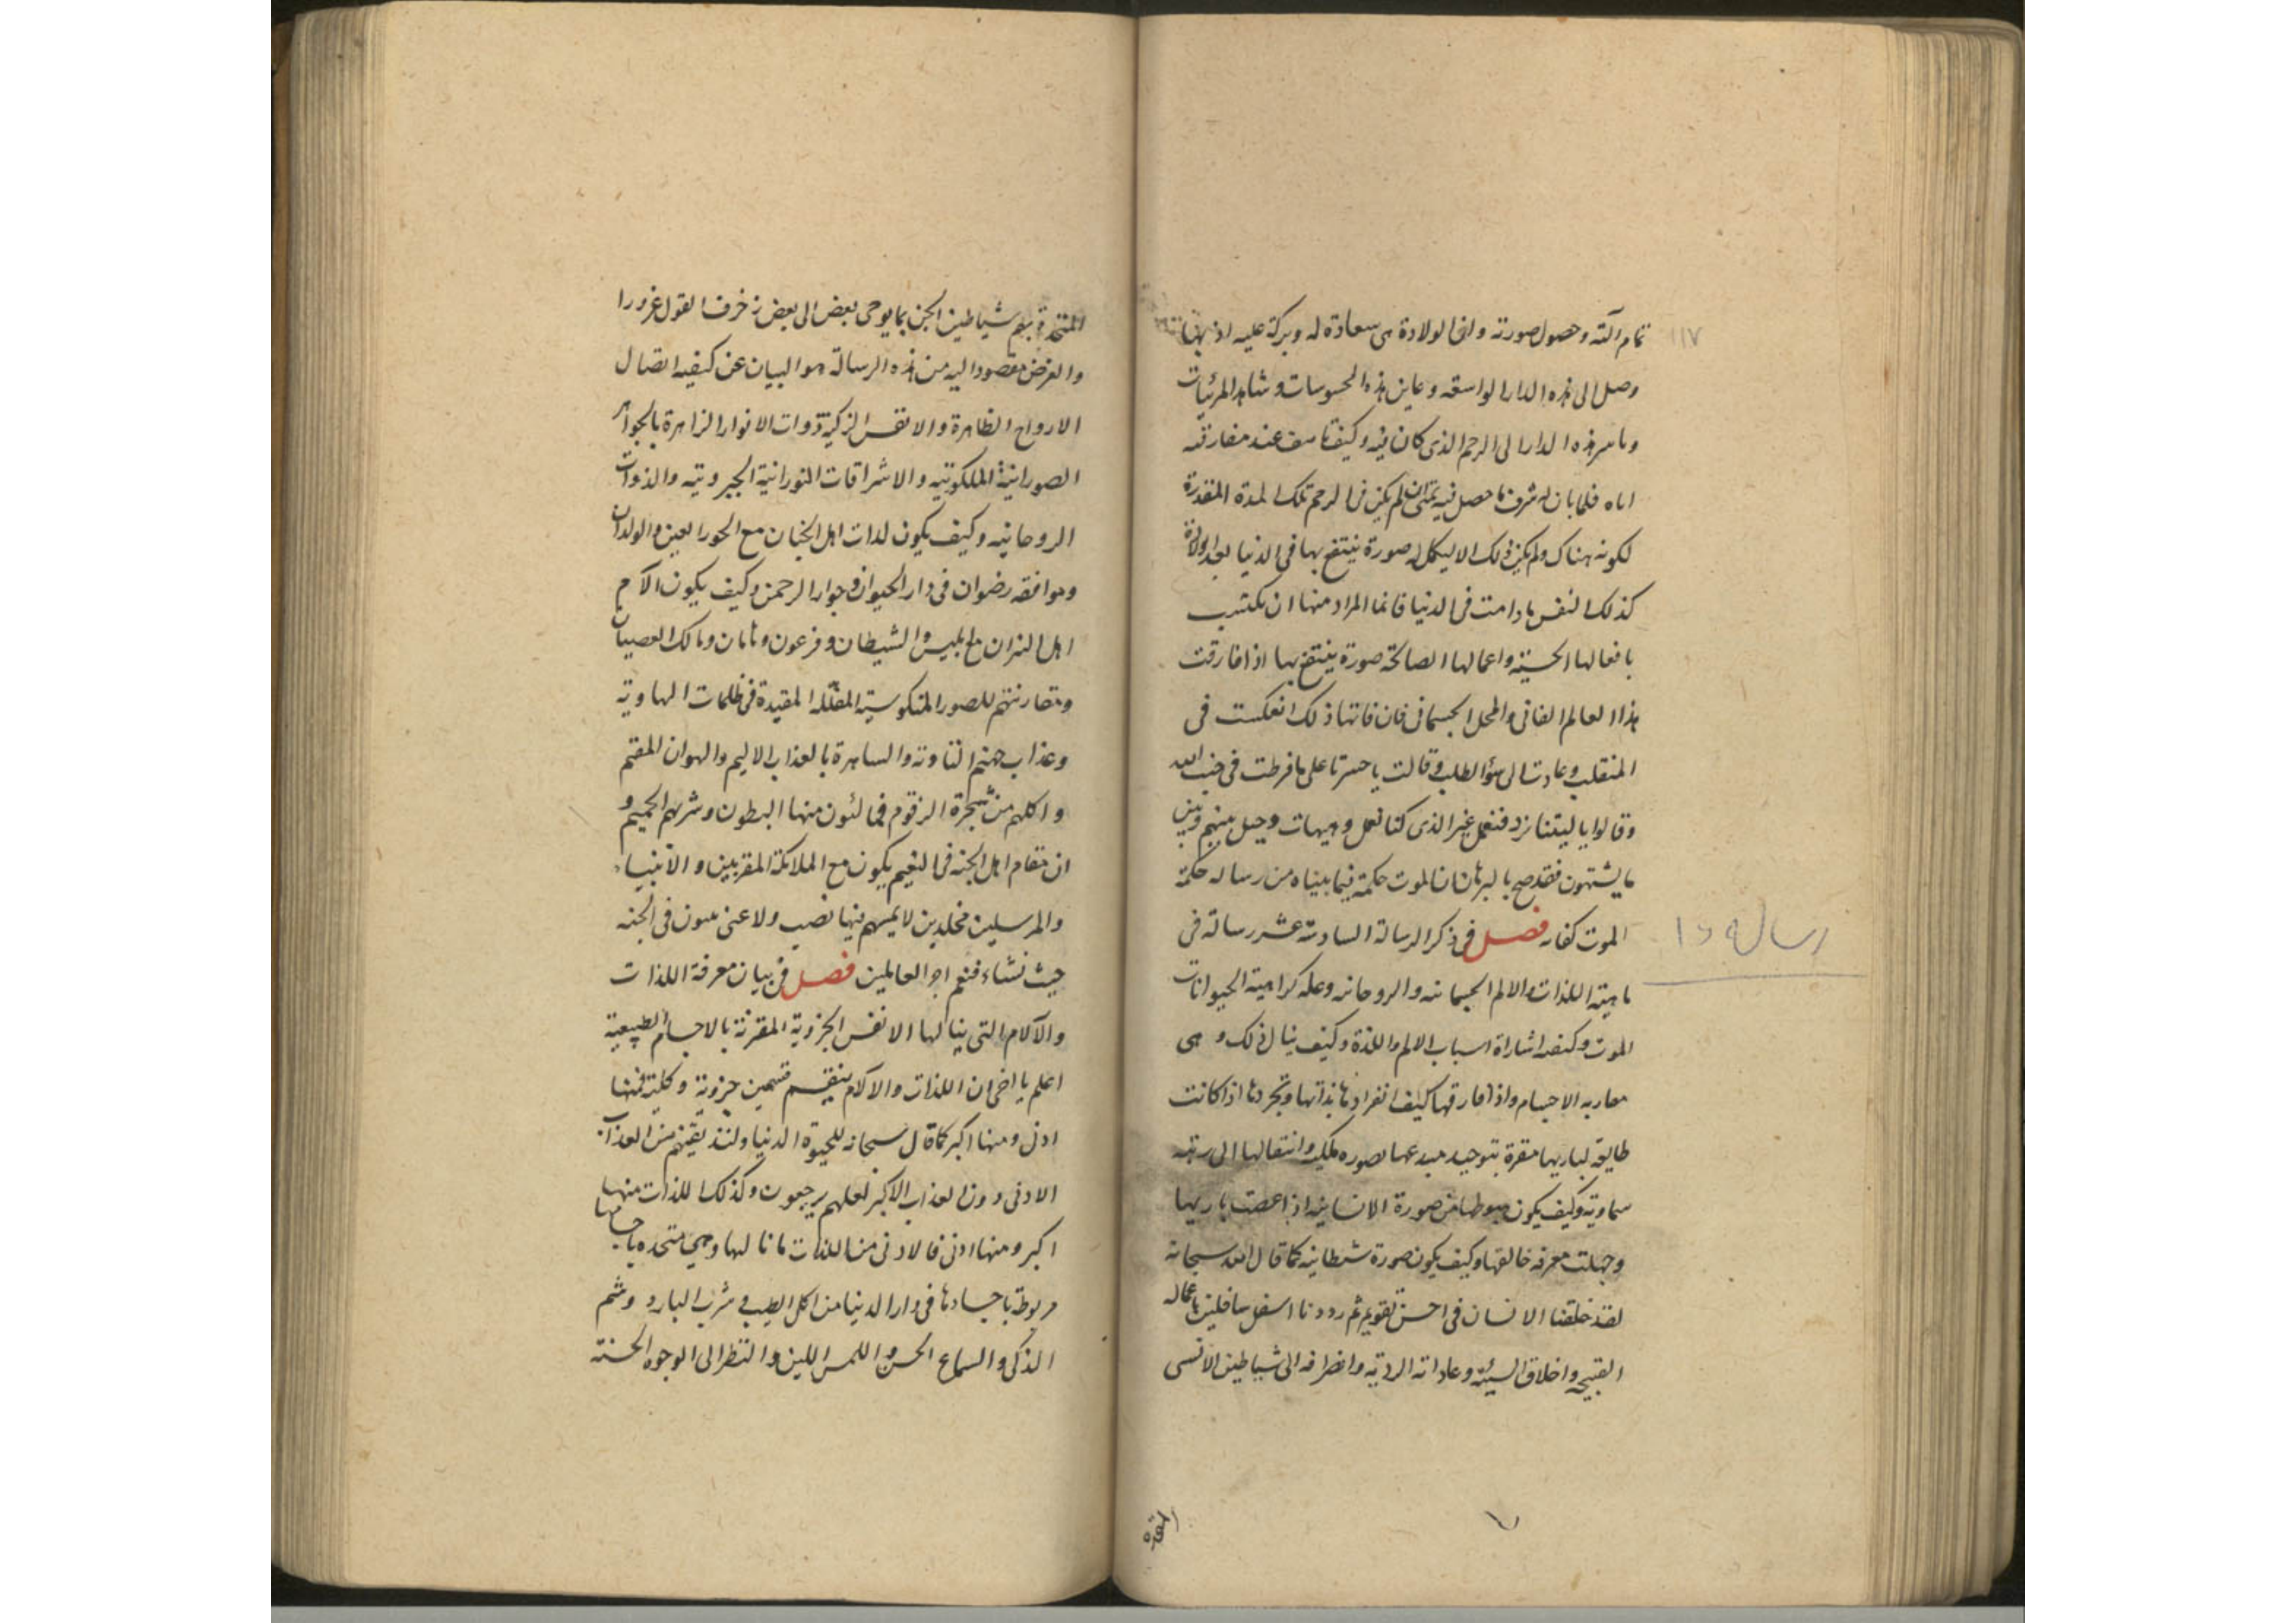 ١١٧
تمام آلته وحصول صورته وان الولادة هى سعادة له وبركة عليه اذ بها
وصل الى هذه الدار الواسعه وعاين هذه المحسوسات وشاهد المرئيات
وما سر هذه الدار الى الرحم الذى كان فيه وكيف تاسف عند مفارقته
اياه فلما بان له شرف ما حصل فيه تمنى ان لم يكن فى الرحم تلك المدة المتقدرة
لكونه هناك ولم يكن ذلك الا ليكمل له صورة ينتفع بها فى الدنيا بعد الولادة
كذلك النفس ما دامت فى الدنيا فانما المراد منها ان تكتسب
بافعالها الحسنه واعمالها الصالحة صورة ينتفع بها اذا فارقت
هذا العالم الفانى والمحل الجسمانى فان فاتها ذلك انعكست فى
المنقلب وعادت الى سؤ الطلب وقالت يا حسرتا على ما فرطت فى جنب الله
وقالوا يا ليتنا نرد فنعمل غير الذى كنا نعمل وهيهات وحيل بينهم وبين
ما يشتهون فقد صح بالبرهان ان الموت حكمة فيما بيناه من رساله حكمة
الموت كفايه فصل فى ذكر الرسالة السادسة عشر رسالة فى
رساله ١٦
ماهية اللذات والالم الجسمانيه والروحانيه وعله كراهية الحيوانات
الموت وكيفيه اشاراة اسباب الالم واللذة وكيف ينال ذلك و هى
مقاربه الاجسام واذا فارقها كيف انفرادها بذاتها وتجردها اذا كانت
طايعة لباريها مقرة بتوحيد مبدعها بصوره ملكيه وانتقالها الى رتبه
سماوية وكيف يكون هبوطها من صورة الانسانيه اذا عصت باريها
وجهلت معرفه خالقها وكيف يكون صورة شيطانيه كما قال الله سبحانه
لقد خلقنا الانسان فى احسن تقويم ثم رددناه اسفل سافلين باعماله
القبيحه واخلاق السيئه وعاداته الرديه وانصرافه الى شياطين الانسى
المتحدة
المتحدة بهم شياطين الجن بما يوحى بعض الى بعض زخرف القول غرورا
والغرض مقصودا اليه من هذه الرسالة هو البيان عن كيفيه اتصال
الارواح الطاهرة والانفس الزكية ذوات الانوار الزاهرة بالجواهر
الصورانية الملكوتيه والاشراقات النورانية الجبروتيه والذوات
الروحانيه وكيف يكون لذات اهل الجنان مع الحور العين والولدان
وموافقه رضوان فى دار الحيوان وجوار الرحمن وكيف يكون الآم
اهل النيران مع ابليس والشيطان وفرعون وهامان ومالك العصيان
ومقارنتهم للصور المنكوسية المقلله المقيدة فى ظلمات الهاوية
وعذاب جهنم التاونه والساهرة بالعذاب الاليم والهوان المقيم
واكلهم من شجرة الزقوم فمالئون منها البطون وشربهم الحميم و
ان مقام اهل الجنه فى النعيم يكون مع الملائكة المقربين و الانبياء
والمرسلين مخلدين لا يمسهم فيها نصب ولا عنى يبتون فى الجنه
حيث نشاء فنعم اجر العاملين فصل فى بيان معرفة اللذات
والآلام التى ينالها الانفس الجزوية المقرنة بالاجسام الطبيعية
اعلم يا اخى ان اللذات والالآم ينقسم قسمين جزوية وكلية فمنها
ادنى ومنها اكبر كما قال سبحانه للحيوة الدنيا ولنذيقنهم من العذاب
الادنى دون العذاب الاكبر لعلهم يرجعون وكذلك اللذات منها
اكبر ومنها ادنى فالادنى من اللذات ما نالها وهى متحده باجسامها
مربوطة باجسادها فى دار الدنيا من اكل الطيب و شرب البارد وشم
الذكى والسماع الحسن واللمس اللين والنظر الى الوجوه الحسنة